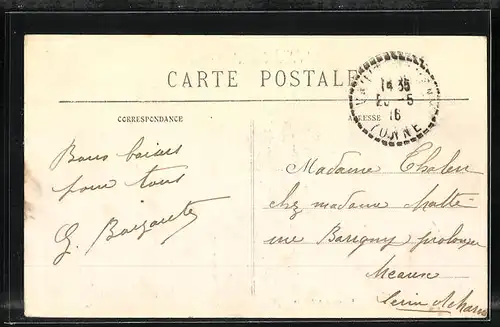 CARTE POSTALE
CORRESPONDANCE
ADRESSE
14 35
16
YONNE
Bons baisers
pour tous
G.
Madame Thalen
chez madame
rue Barigny prolongée
Meaux
Seine et Marne